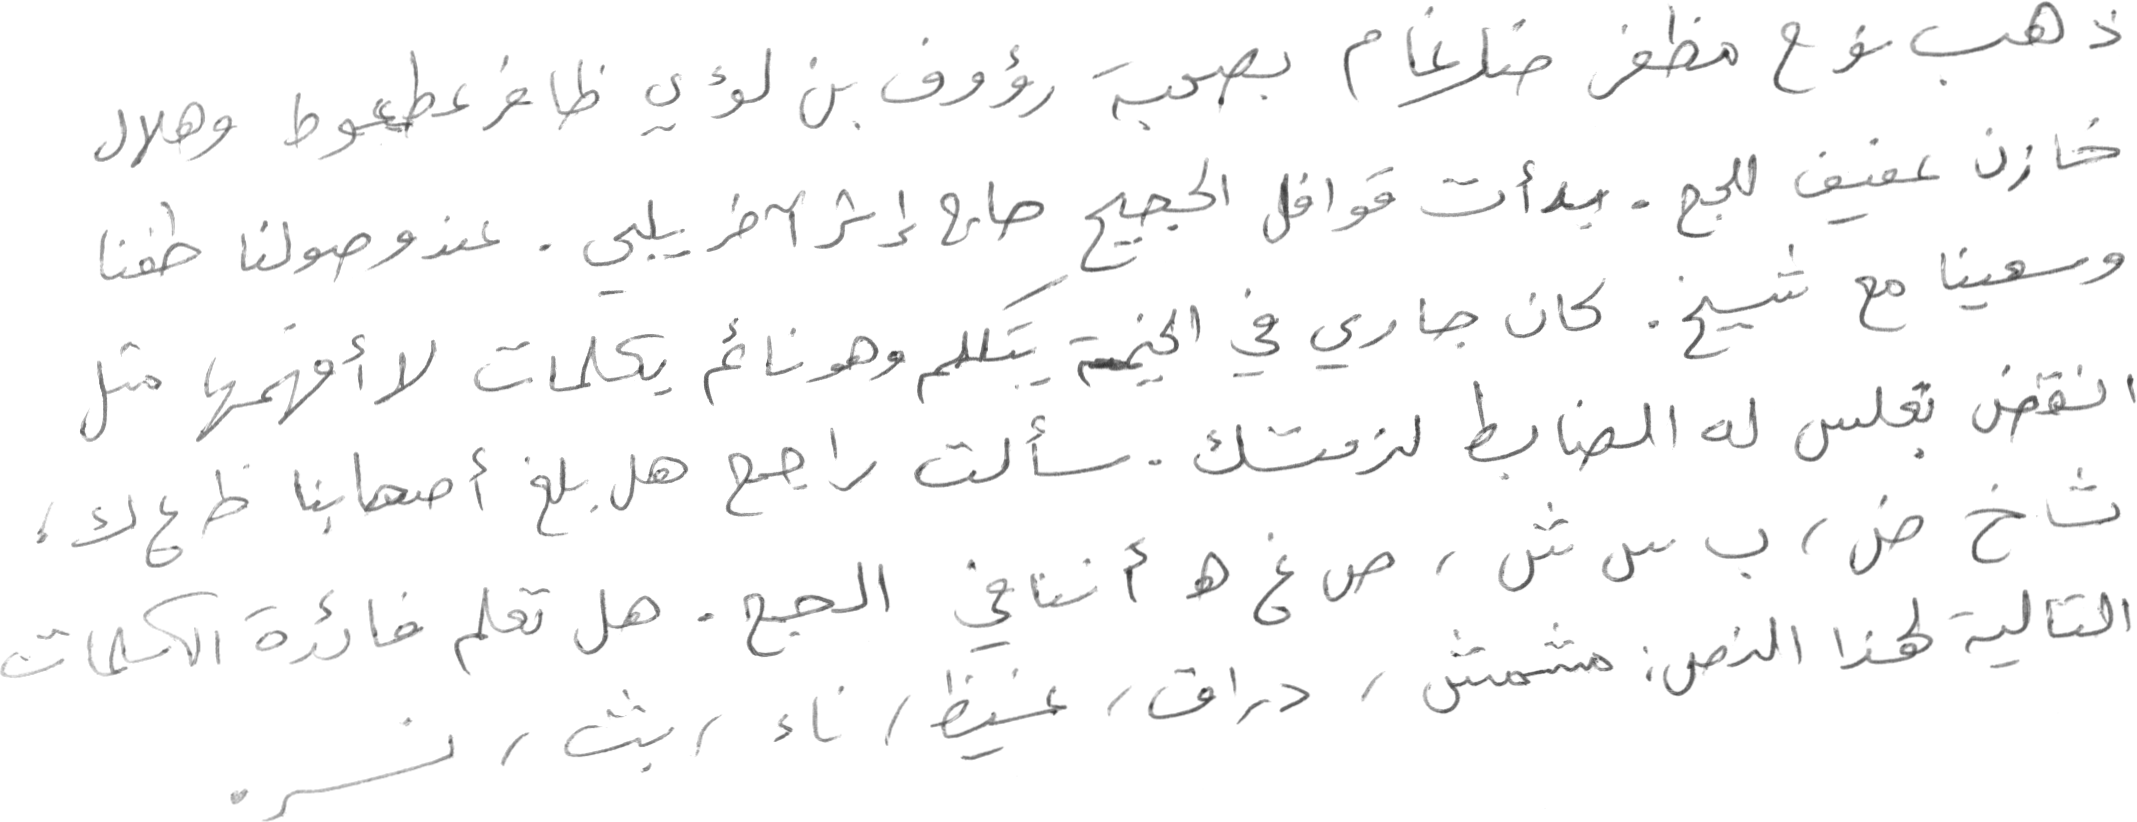 ذهب نوح مظفر ضرغام بصحبة رؤوف بن لؤي ظافر عطعوط وهلال
خازن عفيف للحج . بدأت قوافل الحجيج حاج إثر آخر يلبي . عند وصولنا طفنا
وسعينا مع شيخ . كان جاري في الخيمة يتكلم وهو نائم بكلمات لا أفهمها مثل
انقض بعلس له الضابط لزمتك . سألت راجح هل بلغ أصحابنا ظ ع ك ،
ث خ ض ، ب س ش ، ص غ ه أننا في الحج . هل تعلم فائدة الكلمات
التالية لهذا النص : مشمش ، دراق ، غيظ ، ناء ، بث ، نسر .